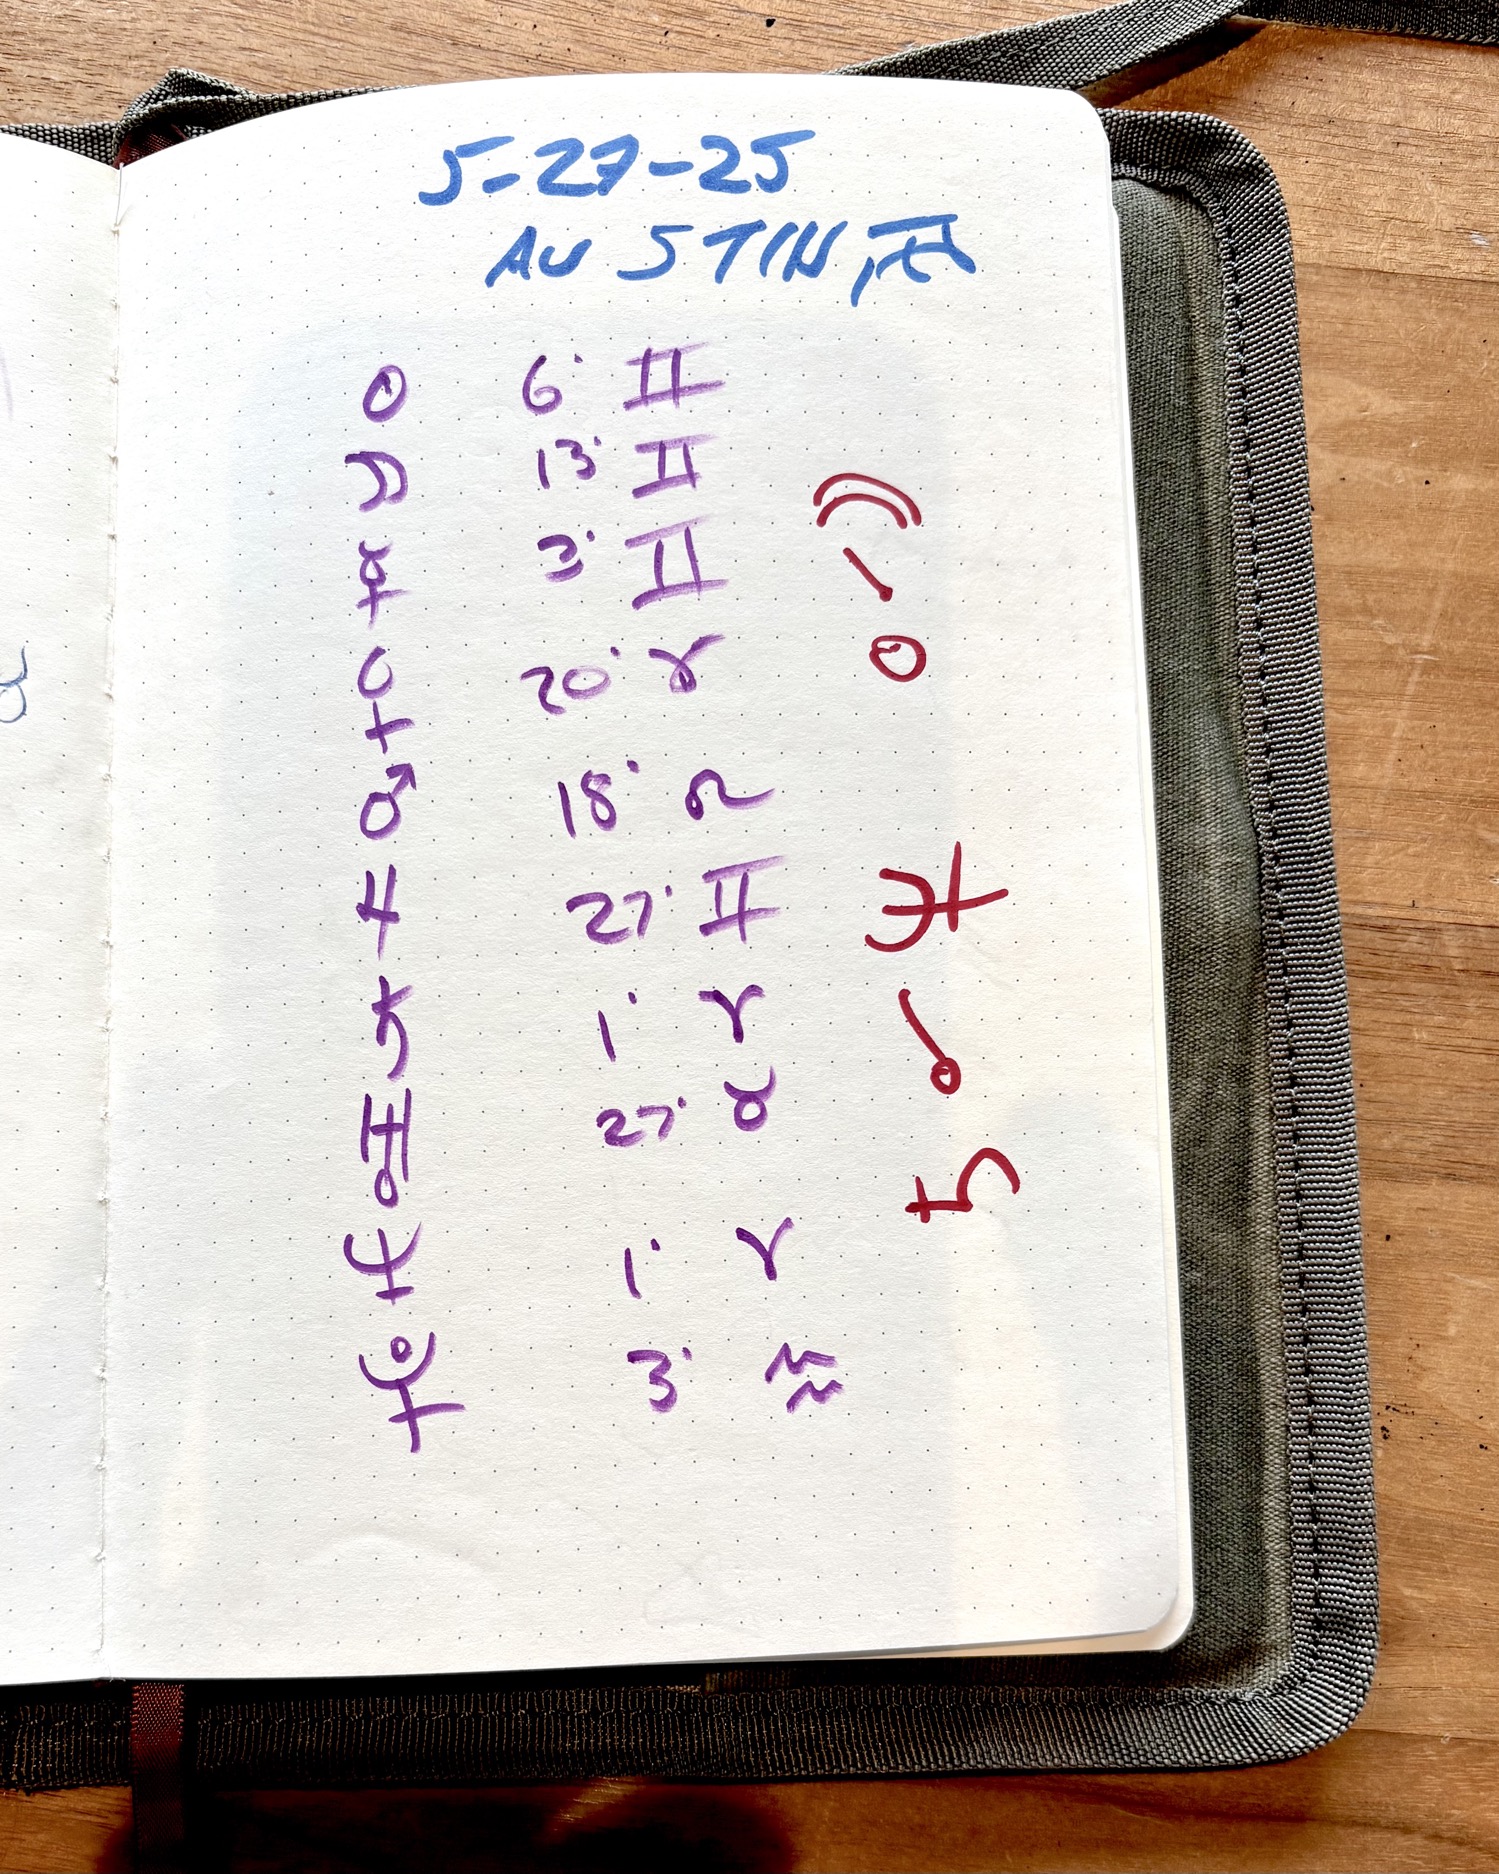 5-27-25
AUSTIN, TX
☉ 6° ♊
☽ 13° ♊
☿ 3° ♊
♀ 20° ♈
♂ 18° ♌
♃ 27° ♊
♄ 1° ♈
♅ 27° ♉
♆ 1° ♈
♇ 3° ♒
☽
☌
☉
♃
☌
♄